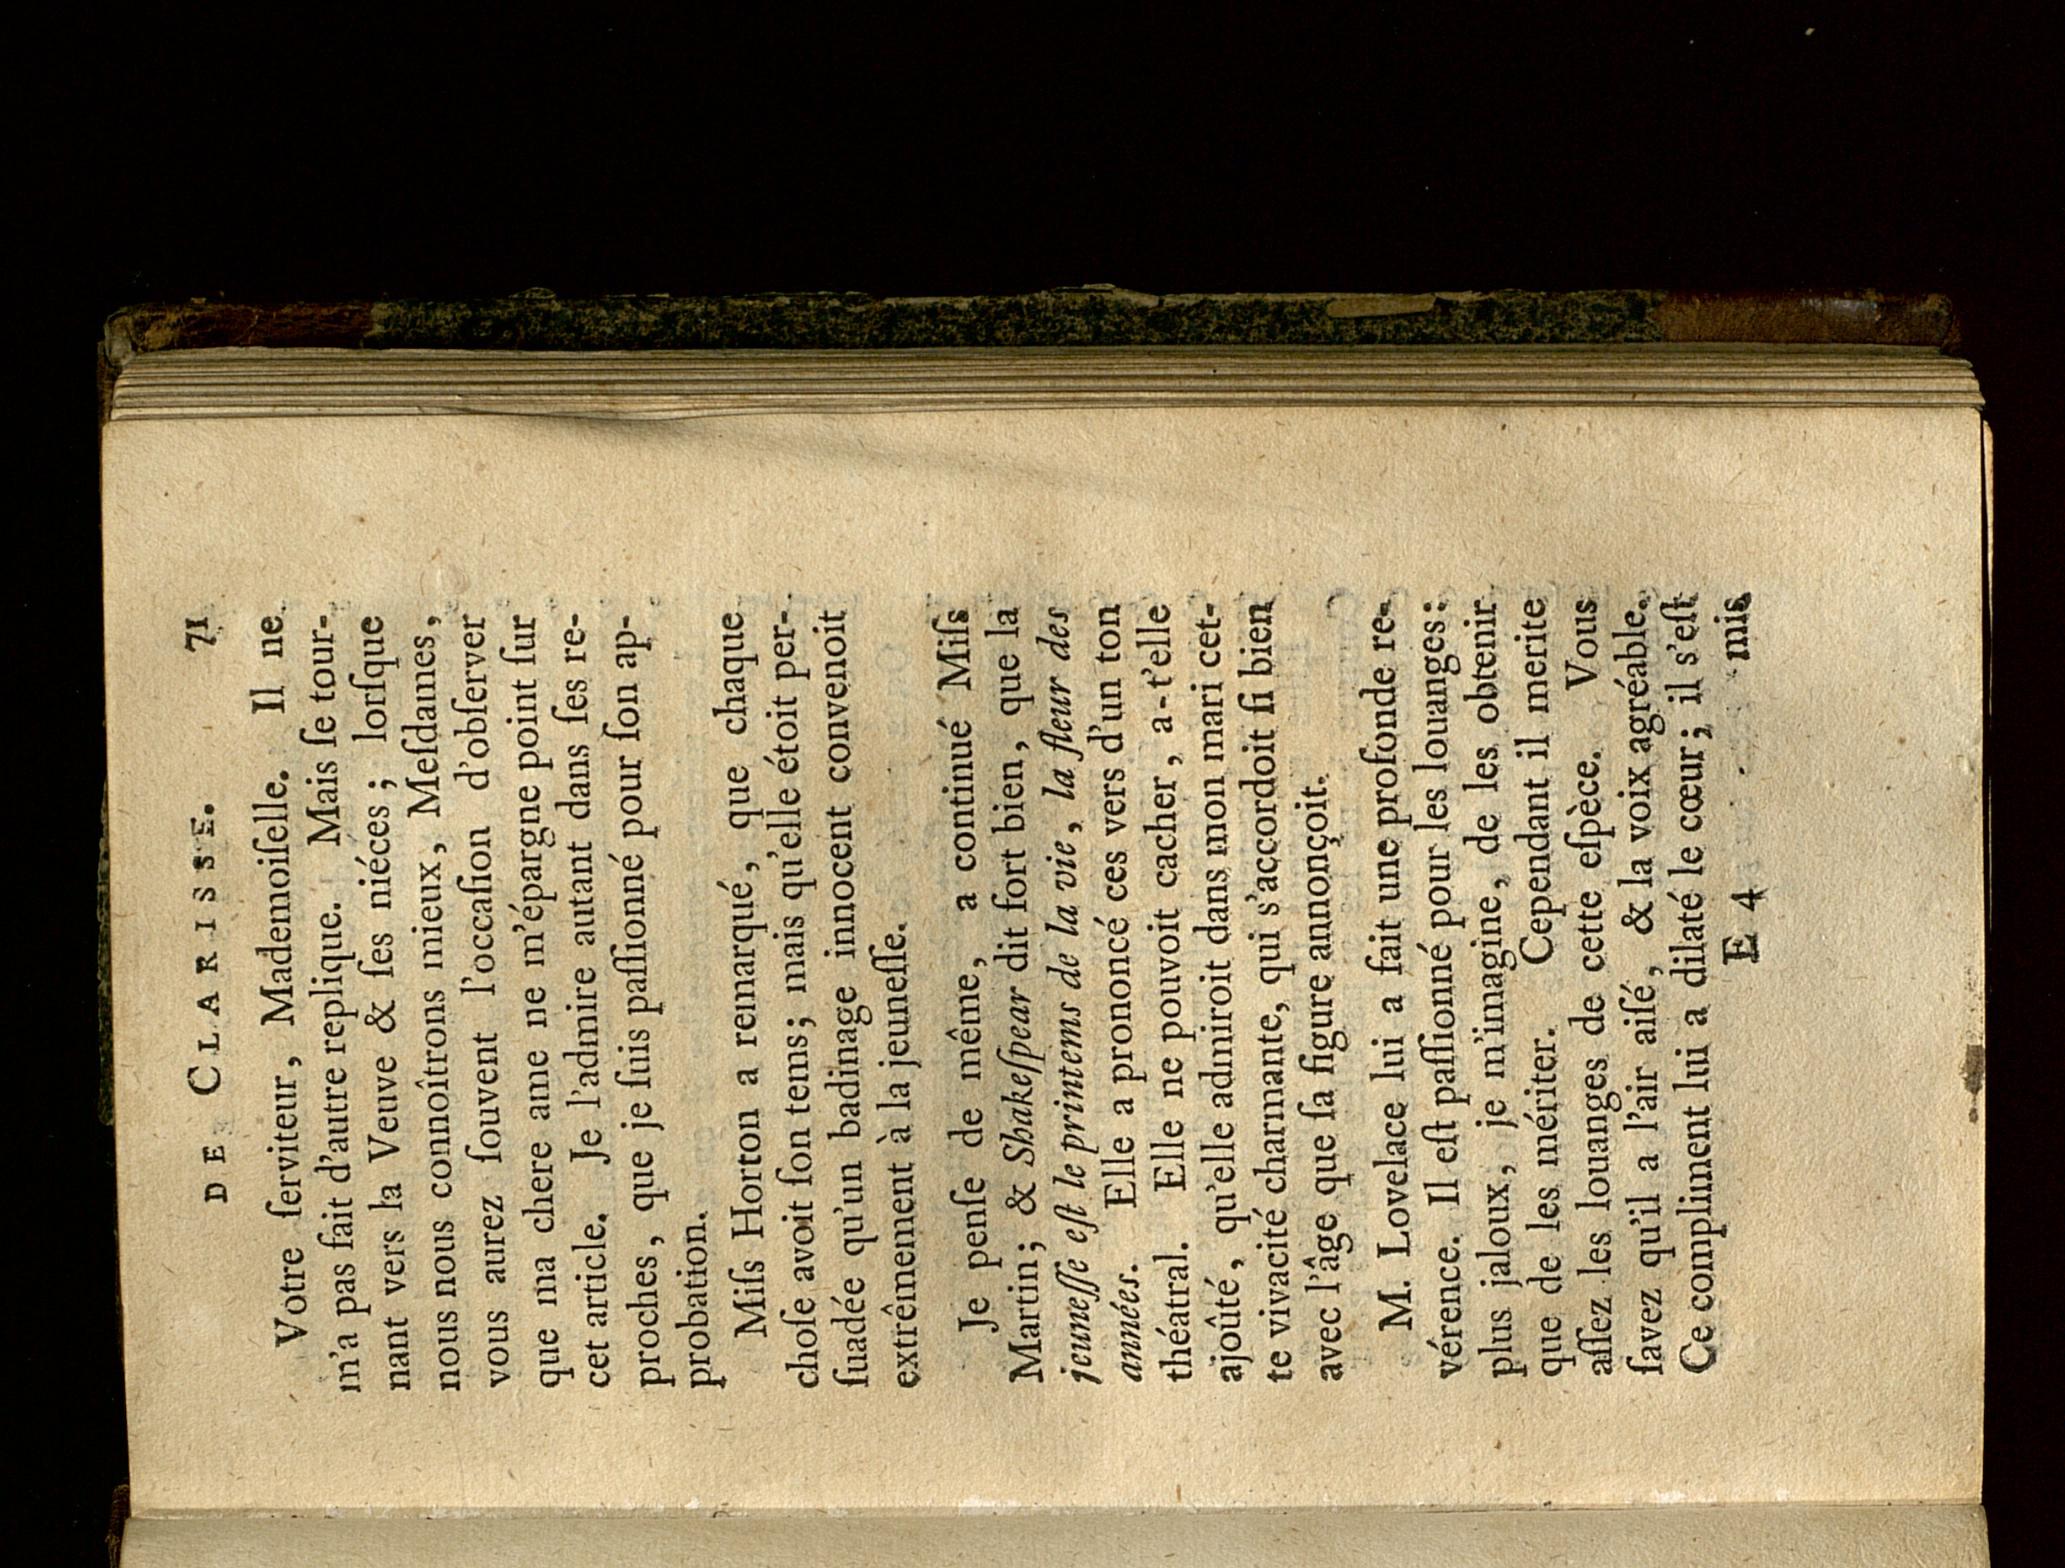 DE CLARISSE. 71
Votre ſerviteur, Mademoiſelle. Il ne
m'a pas fait d'autre replique. Mais ſe tour-
nant vers la Veuve & ſes niéces; lorſque
nous nous connoîtrons mieux, Meſdames,
vous aurez ſouvent l'occaſion d'obſerver
que ma chere ame ne m'épargne point ſur
cet article. Je l'admire autant dans ſes re-
proches, que je ſuis paſſionné pour ſon ap-
probation.
Miſs Horton a remarqué, que chaque
choſe avoit ſon tems; mais qu'elle étoit per-
ſuadée qu'un badinage innocent convenoit
extrêmement à la jeuneſſe.
Je penſe de même, a continué Miſs
Martin; & Shakeſpear dit fort bien, que la
jeuneſſe eſt le printems de la vie, la fleur des
années. Elle a prononcé ces vers d'un ton
théatral. Elle ne pouvoit cacher, a-t'elle
ajoûté, qu'elle admiroit dans mon mari cet-
te vivacité charmante, qui s'accordoit ſi bien
avec l'âge que ſa figure annonçoit.
M. Lovelace lui a fait une profonde re-
vérence. Il eſt paſſionné pour les louanges:
plus jaloux, je m'imagine, de les obtenir
que de les mériter. Cependant il merite
aſſez les louanges de cette eſpèce. Vous
ſavez qu'il a l'air aiſé, & la voix agréable.
Ce compliment lui a dilaté le cœur; il s'eſt
E 4 mis